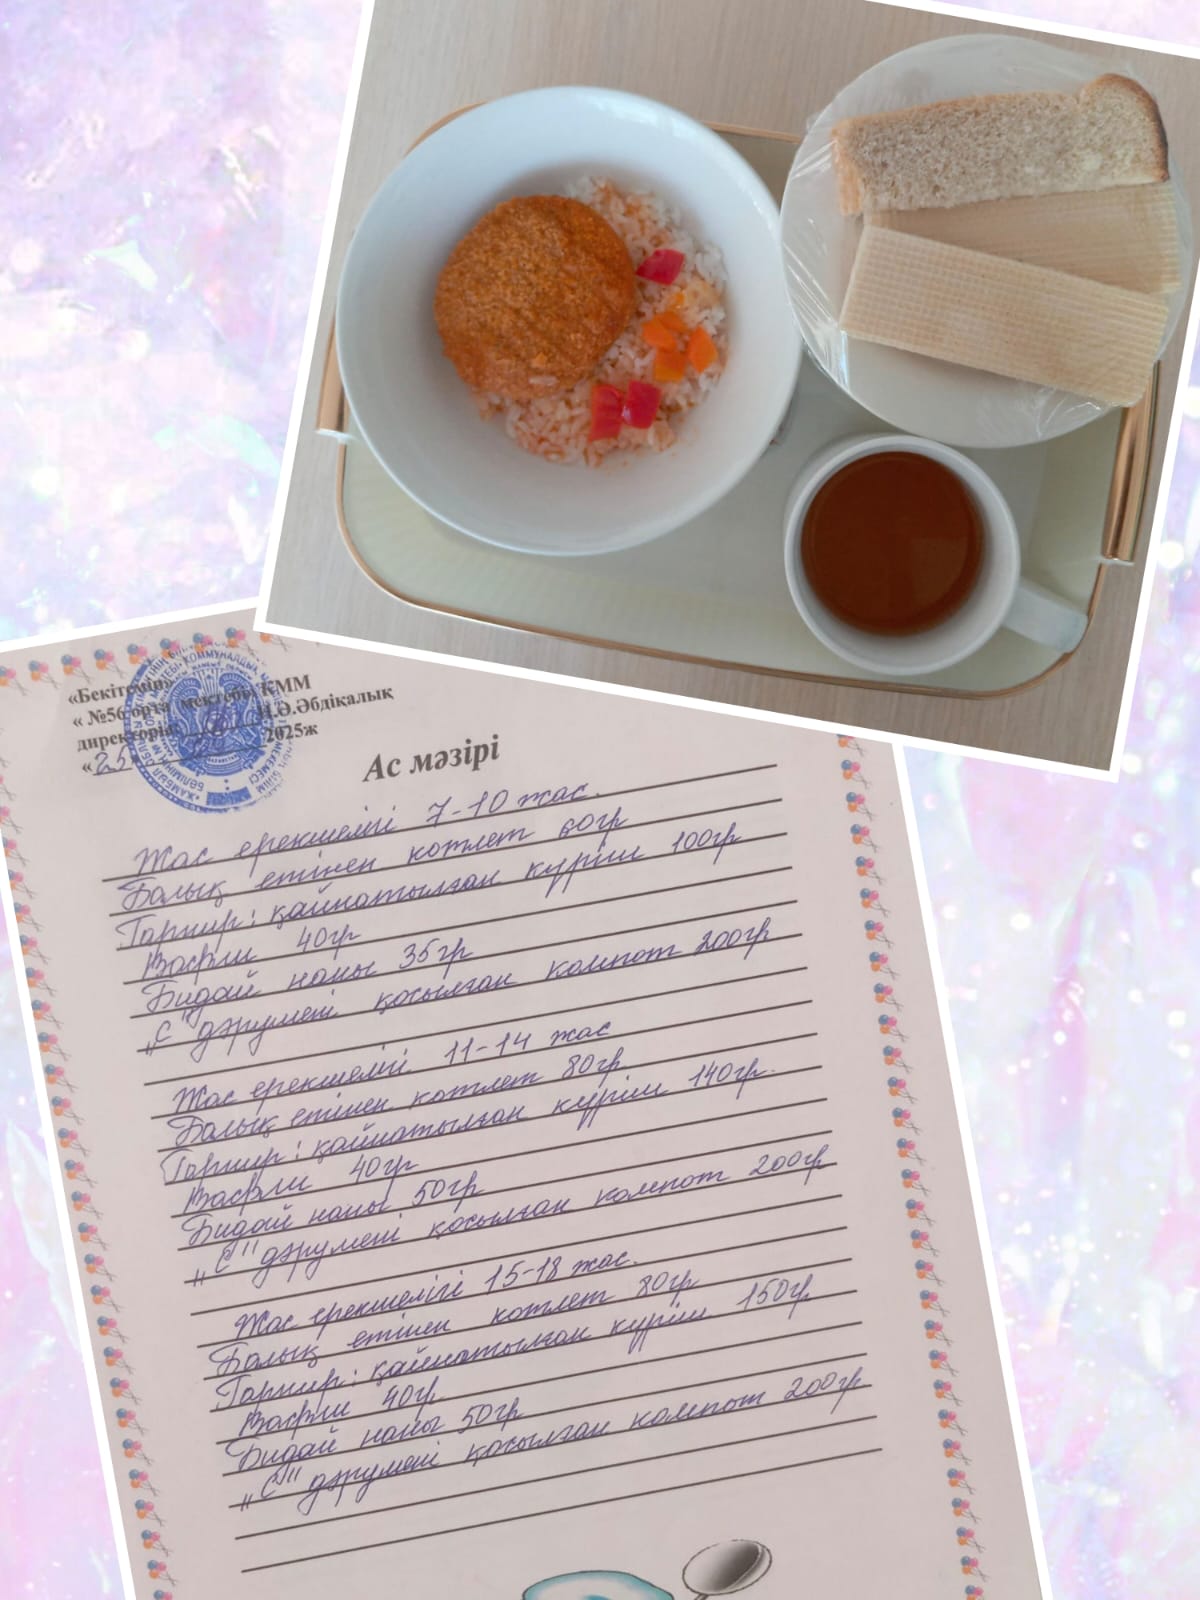 «Бекітемін»
« №56 орта мектебі» КММ
директоры Н.Ә.Әбдіқалық
«25» 2025ж
Ас мәзірі
Жас ерекшелігі 7-10 жас.
Балық етінен котлет 60гр
Гарнир: қайнатылған күріш 100гр
Вафли 40гр
Бидай наны 35гр
"С" дәрумені қосылған компот 200гр
Жас ерекшелігі 11-14 жас
Балық етінен котлет 80гр
Гарнир: қайнатылған күріш 140гр.
Вафли 40гр
Бидай наны 50гр
"С" дәрумені қосылған компот 200гр
Жас ерекшелігі 15-18 жас.
Балық етінен котлет 80гр
Гарнир: қайнатылған күріш 150гр
Вафли 40гр
Бидай наны 50гр
"С" дәрумені қосылған компот 200гр